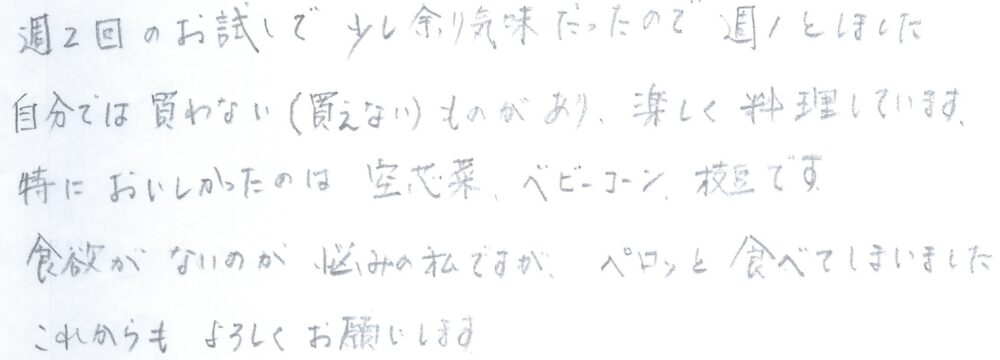 週2回のお試しで少し余り気味だったので週1としました
自分では買わない(買えない)ものがあり、楽しく料理しています。
特においしかったのは空芯菜、ベビーコーン、枝豆です
食欲がないのが悩みの私ですが、ペロッと食べてしまいました
これからもよろしくお願いします